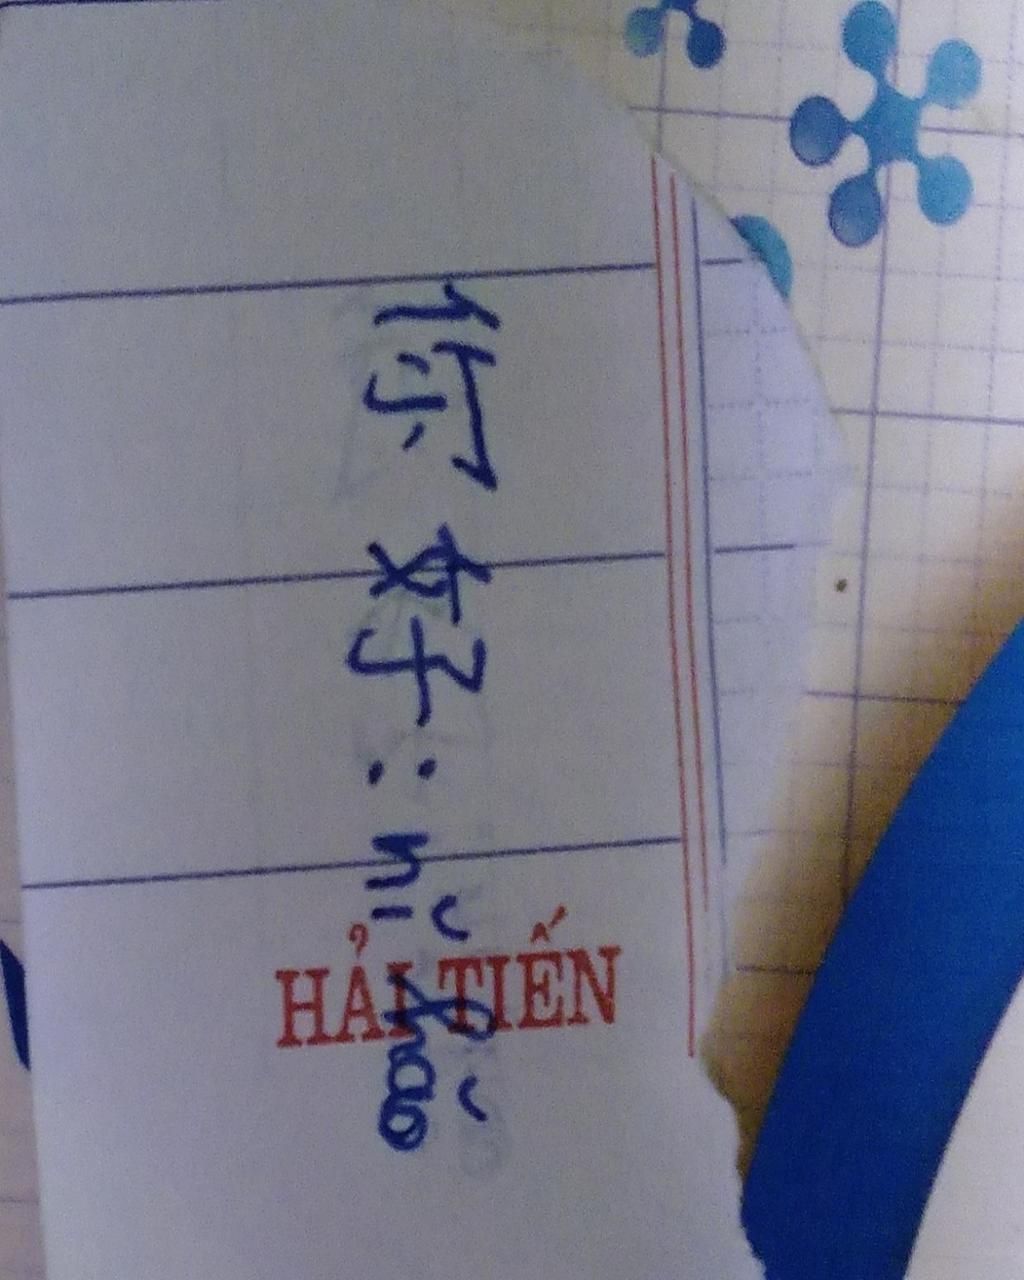 你好: nǐ hǎo
HẢI TIẾN